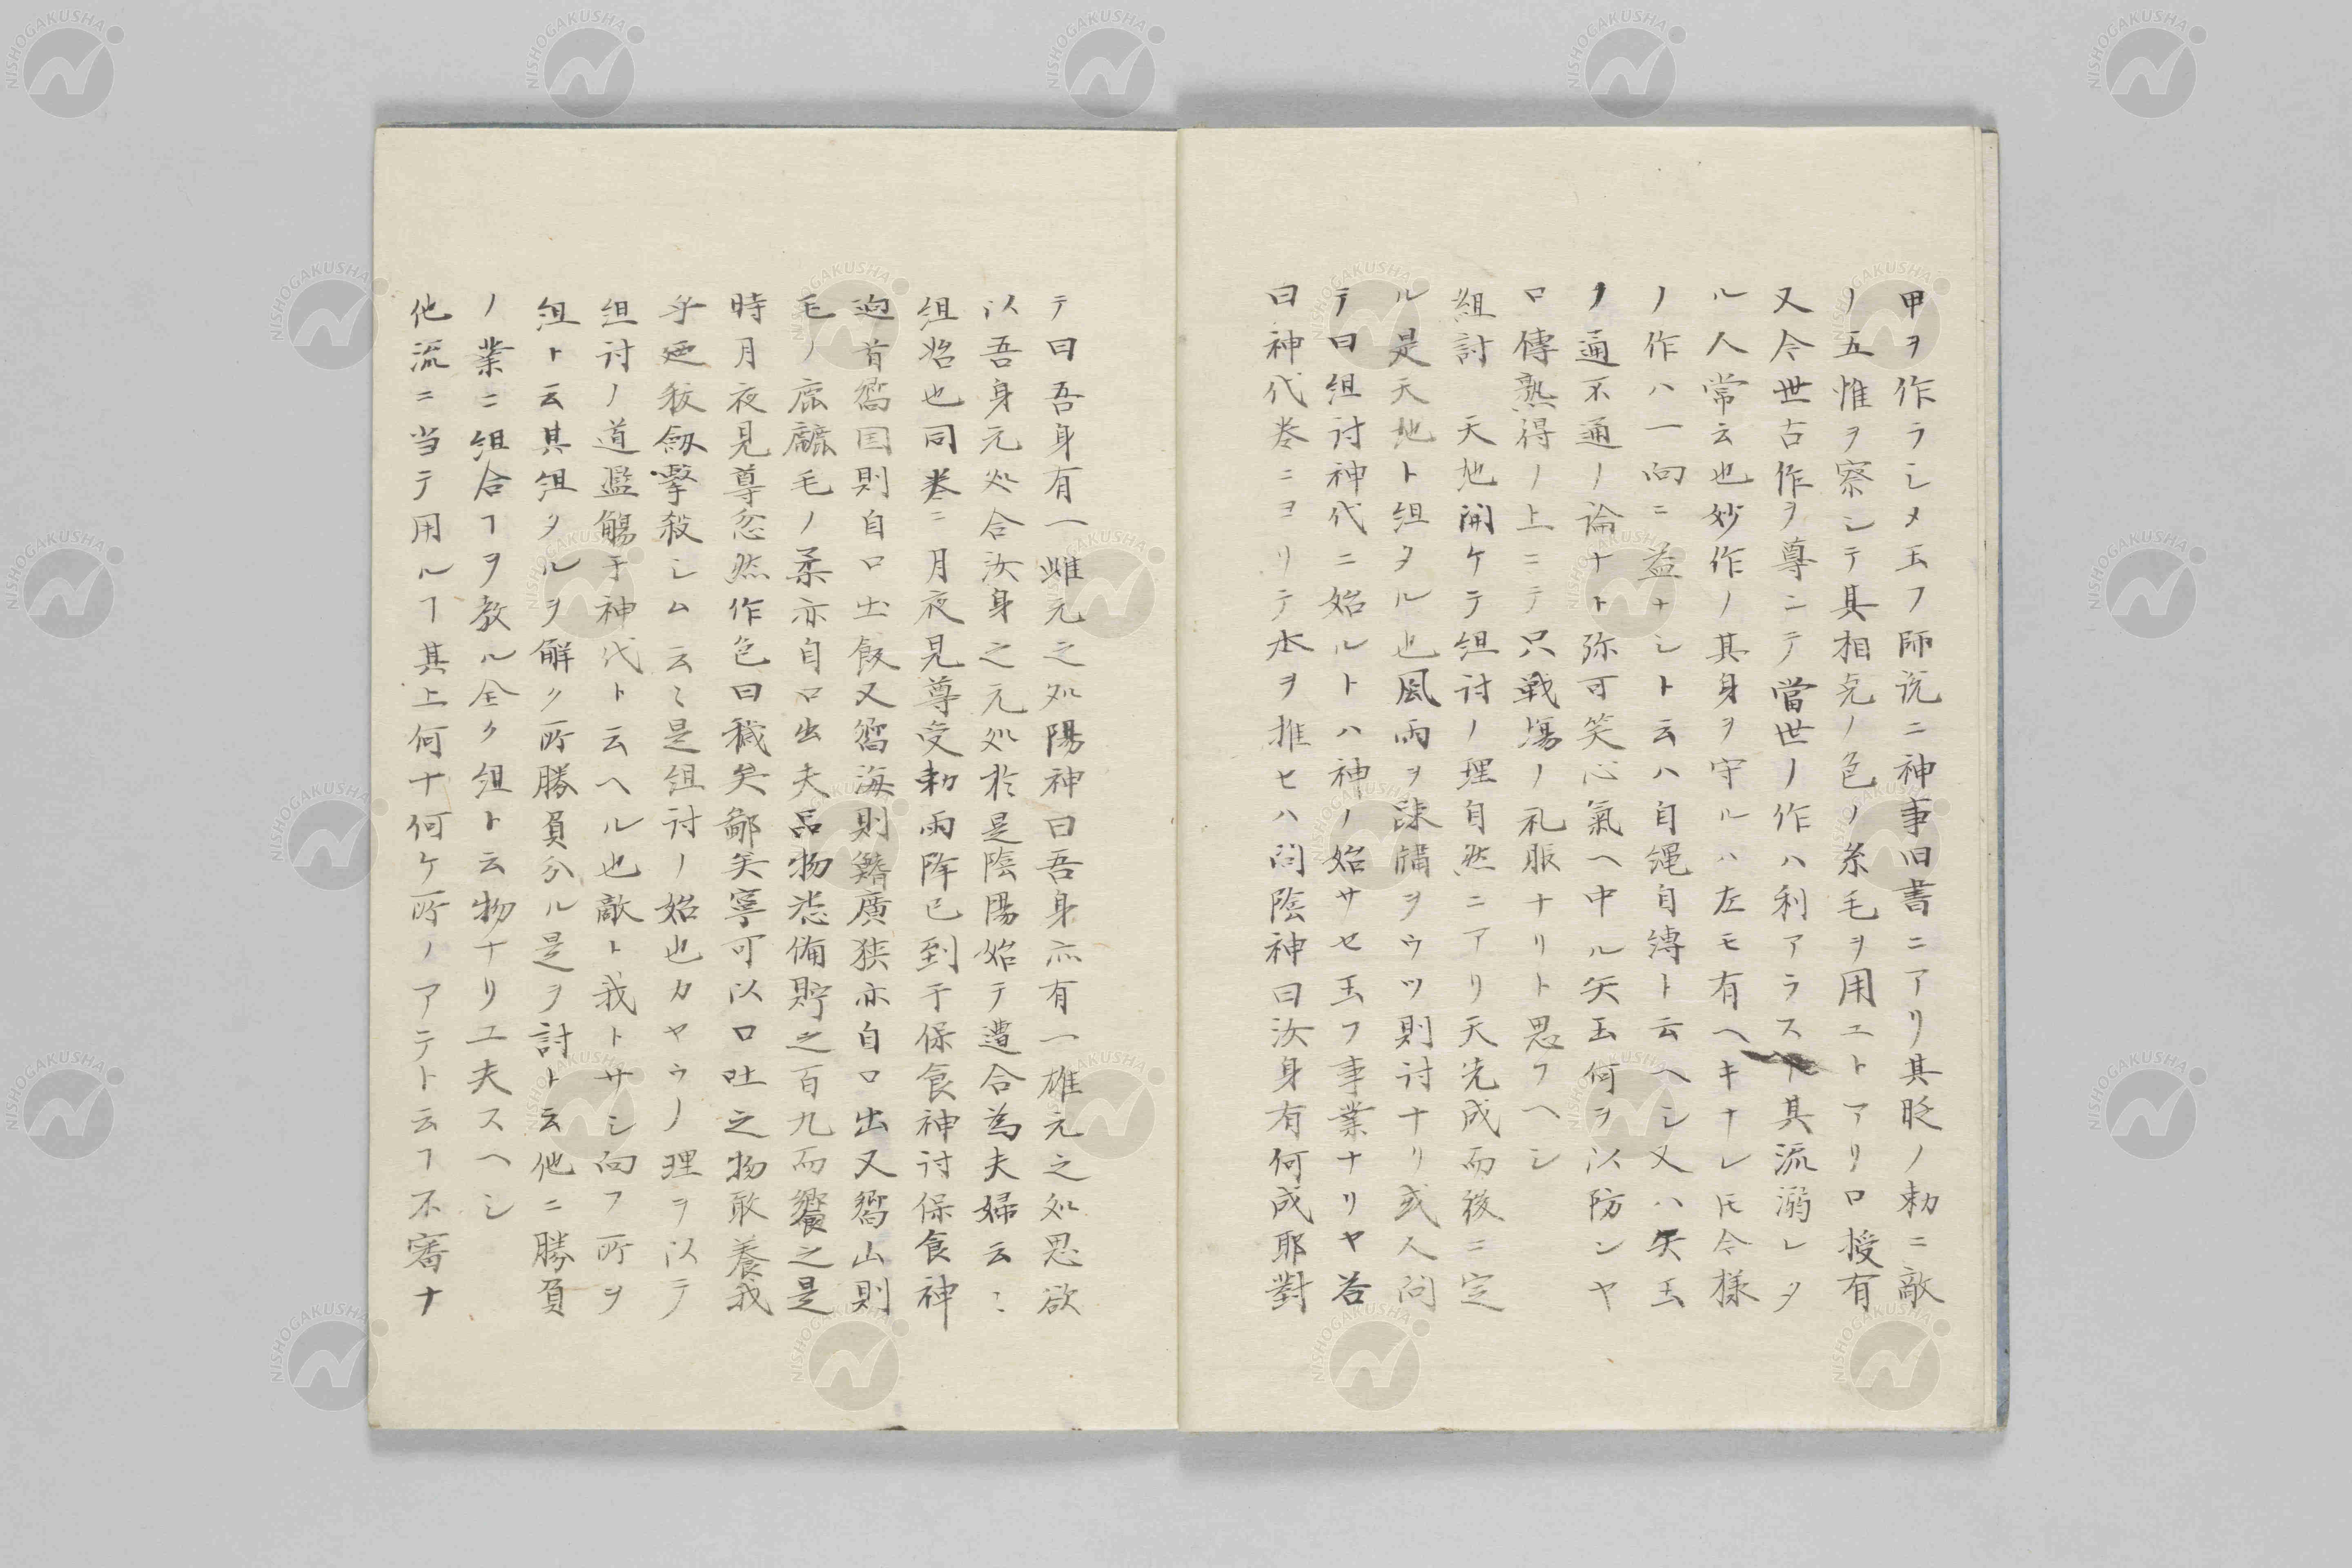 甲ヲ作ラシメ玉フ師説ニ神事旧書ニアリ其貶ノ勅ニ敵
ノ五惟ヲ察シテ其相克ノ色ノ糸毛ヲ用ユトアリ口授有
又今世古作ヲ尊ンテ當世ノ作ハ利アラス其流溺レタ
ル人常云也妙作ノ其身ヲ守ルハ左モ有ヘキナレ𪜈今樣
ノ作ハ一向ニ益ナシト云ハ自縄自縛ト云ヘシ又ハ矢玉
ノ通不通ノ論ナト弥可笑心氣ヘ中ル矢玉何ヲ以防ンヤ
口傳熟得ノ上ニテ只戦場ノ礼服ナリト思フヘシ
組討 天地開ケテ組討ノ理自然ニアリ天先成而後ニ定
ル是天地ト組タル也風雨ヲ踈備ヲウツ則討ナリ或人問
テ曰組討神代ニ始ルトハ神ノ始サセ玉フ事業ナリヤ答
曰神代巻ニヨリテ本ヲ推セハ問陰神曰汝身有何成耶對
テ曰吾身有一雌元之処陽神曰吾身亦有一雄元之処思欲
以吾身元処合汝身之元処於是陰陽始テ遘合為夫婦云〻
組始也同巻ニ月夜見尊受勅而降已到于保食神討保食神
廻首嚮国則自口出飯又嚮海則鰭廣狭亦自口出又嚮山則
毛ノ麁麤毛ノ柔亦自口出夫品物悉備貯之百九而饗之是
時月夜見尊忿然作色曰穢矣鄙矣寧可以口吐之物敢養我
乎廼抜劔撃殺シム云〻是組討ノ始也カヤウノ理ヲ以テ
組討ノ道濫觴于神代ト云ヘル也敵ト我トサシ向フ所ヲ
組ト云其組タルヲ解ク所勝負分ル是ヲ討ト云他ニ勝負
ノ業ニ組合ヿヲ教ル全ク組ト云物ナリ工夫スヘシ
他流ニ当テ用ルヿ其上何十何ケ所ノアテト云ヿ不審ナ
NISHOGAKUSHA